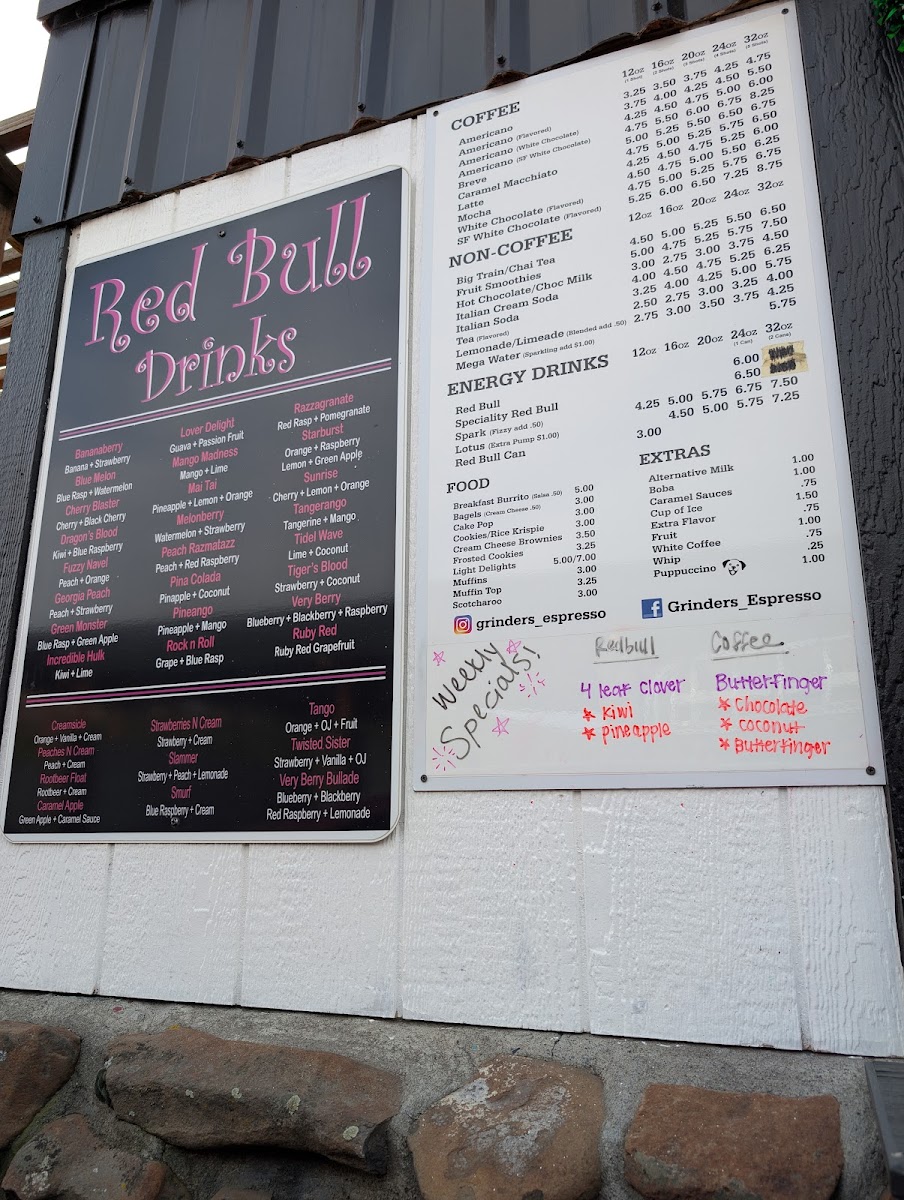 Red Bull
Drinks
Bananaberry
Banana + Strawberry
Blue Melon
Blue Rasp + Watermelon
Cherry Blaster
Cherry + Black Cherry
Dragon's Blood
Kiwi + Blue Raspberry
Fuzzy Navel
Peach + Orange
Georgia Peach
Peach + Strawberry
Green Monster
Blue Rasp + Green Apple
Incredible Hulk
Kiwi + Lime
Lover Delight
Guava + Passion Fruit
Mango Madness
Mango + Lime
Mai Tai
Pineapple + Lemon + Orange
Melonberry
Watermelon + Strawberry
Peach Razmatazz
Peach + Red Raspberry
Pina Colada
Pineapple + Coconut
Pineango
Pineapple + Mango
Rock n Roll
Grape + Blue Rasp
Razzagranate
Red Rasp + Pomegranate
Starburst
Orange + Raspberry
Lemon + Green Apple
Sunrise
Cherry + Lemon + Orange
Tangerango
Tangerine + Mango
Tidel Wave
Lime + Coconut
Tiger's Blood
Strawberry + Coconut
Very Berry
Blueberry + Blackberry + Raspberry
Ruby Red
Ruby Red Grapefruit
Creamsicle
Orange + Vanilla + Cream
Peaches N Cream
Peach + Cream
Rootbeer Float
Rootbeer + Cream
Caramel Apple
Green Apple + Caramel Sauce
Strawberries N Cream
Strawberry + Cream
Slammer
Strawberry + Peach + Lemonade
Smurf
Blue Raspberry + Cream
Tango
Orange + OJ + Fruit
Twisted Sister
Strawberry + Vanilla + OJ
Very Berry Bullade
Blueberry + Blackberry
Red Raspberry + Lemonade
COFFEE 12oz 16oz 20oz 24oz 32oz
(1 Shot) (2 Shots) (3 Shots) (4 Shots) (5 Shots)
Americano 3.25 3.50 3.75 4.25 4.75
Americano (Flavored) 3.75 4.00 4.25 4.50 5.50
Americano (White Chocolate) 4.25 4.50 4.75 5.00 6.00
Americano (SF White Chocolate) 4.75 5.50 6.00 6.75 8.25
Breve 5.00 5.25 5.50 6.50 6.75
Caramel Macchiato 4.75 5.00 5.25 5.75 6.50
Latte 4.25 4.50 4.75 5.25 6.00
Mocha 4.50 4.75 5.00 5.50 6.25
White Chocolate (Flavored) 4.75 5.00 5.25 5.75 6.75
SF White Chocolate (Flavored) 5.25 6.00 6.50 7.25 8.75
NON-COFFEE 12oz 16oz 20oz 24oz 32oz
Big Train/Chai Tea 4.50 5.00 5.25 5.50 6.50
Fruit Smoothies 5.00 4.75 5.25 5.75 7.50
Hot Chocolate/Choc Milk 3.00 2.75 3.00 3.75 4.50
Italian Cream Soda 4.00 4.50 4.75 5.25 6.25
Italian Soda 3.25 4.00 4.25 5.00 5.75
Tea (Flavored) 2.50 2.75 3.00 3.25 4.00
Lemonade/Limeade (Blended add .50) 2.75 3.00 3.50 3.75 4.25
Mega Water (Sparkling add $1.00) 5.75
ENERGY DRINKS 12oz 16oz 20oz 24oz 32oz
(1 Can) (2 Cans)
Red Bull 6.00
Speciality Red Bull 6.50
Spark (Fizzy add .50) 4.25 5.00 5.75 6.75 7.50
Lotus (Extra Pump $1.00) 4.50 5.00 5.75 7.25
Red Bull Can 3.00
FOOD
Breakfast Burrito (Salsa .50) 5.00
Bagels (Cream Cheese .50) 3.00
Cake Pop 3.00
Cookies/Rice Krispie 3.00
Cream Cheese Brownies 3.50
Frosted Cookies 3.25
Light Delights 5.00/7.00
Muffins 3.00
Muffin Top 3.25
Scotcharoo 3.00
EXTRAS
Alternative Milk 1.00
Boba 1.00
Caramel Sauces .75
Cup of Ice 1.50
Extra Flavor .75
Fruit 1.00
White Coffee .75
Whip .25
Puppuccino 1.00
grinders_espresso
Grinders_Espresso
Weekly
Specials!
Redbull
4 leaf clover
* Kiwi
* pineapple
Coffee
Butterfinger
* Chocolate
* coconut
* Butterfinger